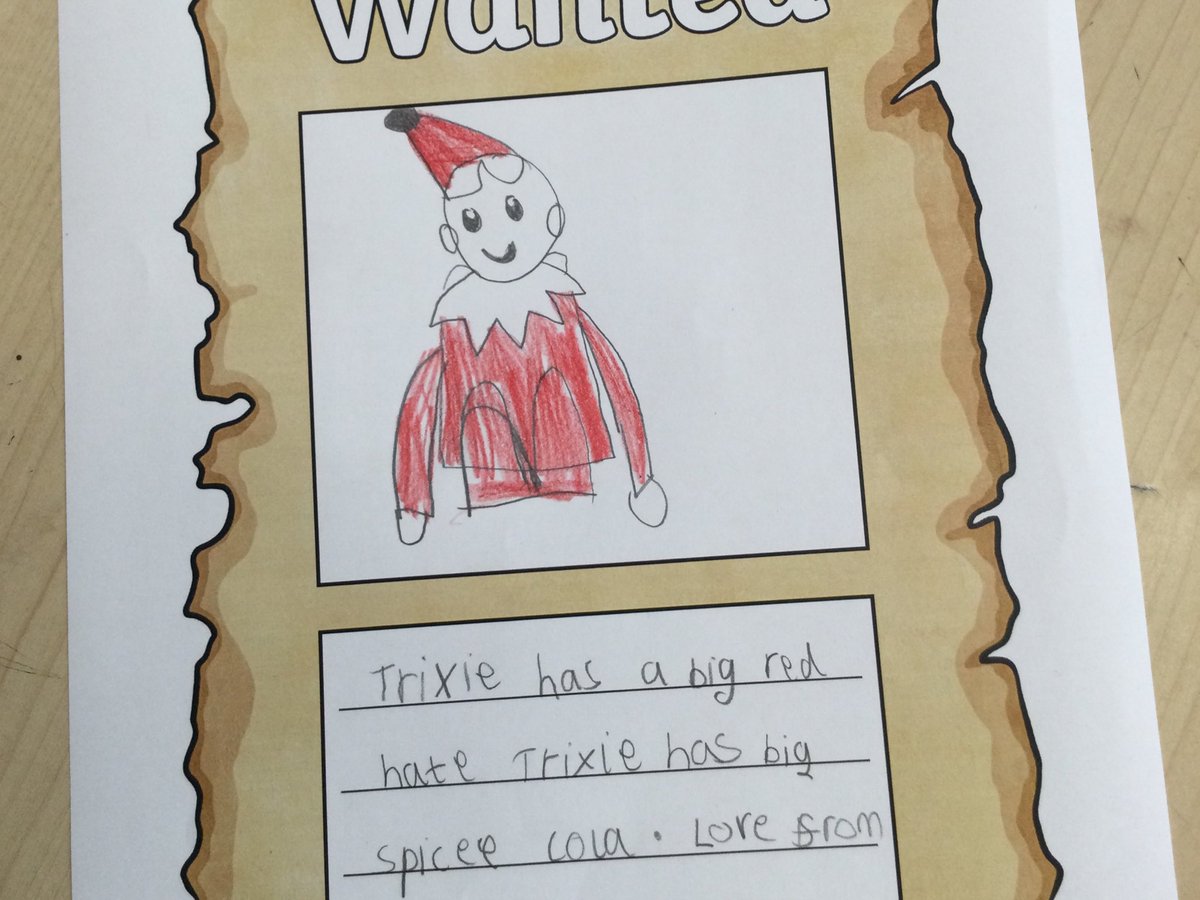 Wanted
Trixie has a big red
hate Trixie has big
spicee cola. Love from